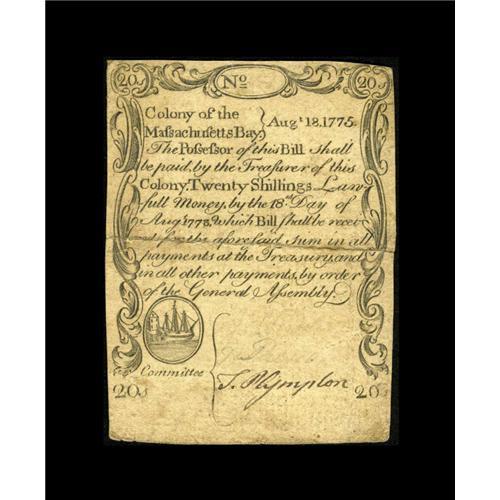 20s No 20s
Colony of the
Massachusetts Bay, } Augt 18.1775
The Possessor of this Bill shall
be paid, by the Treasurer of this
Colony, Twenty Shillings Law-
full Money, by the 18th Day of
Augt 1778, which Bill shall be recei-
for the aforesaid sum in all
payments at the Treasury, and
in all other payments, by order
of the General Assembly.
Committee
J. Plympton
20s 20s